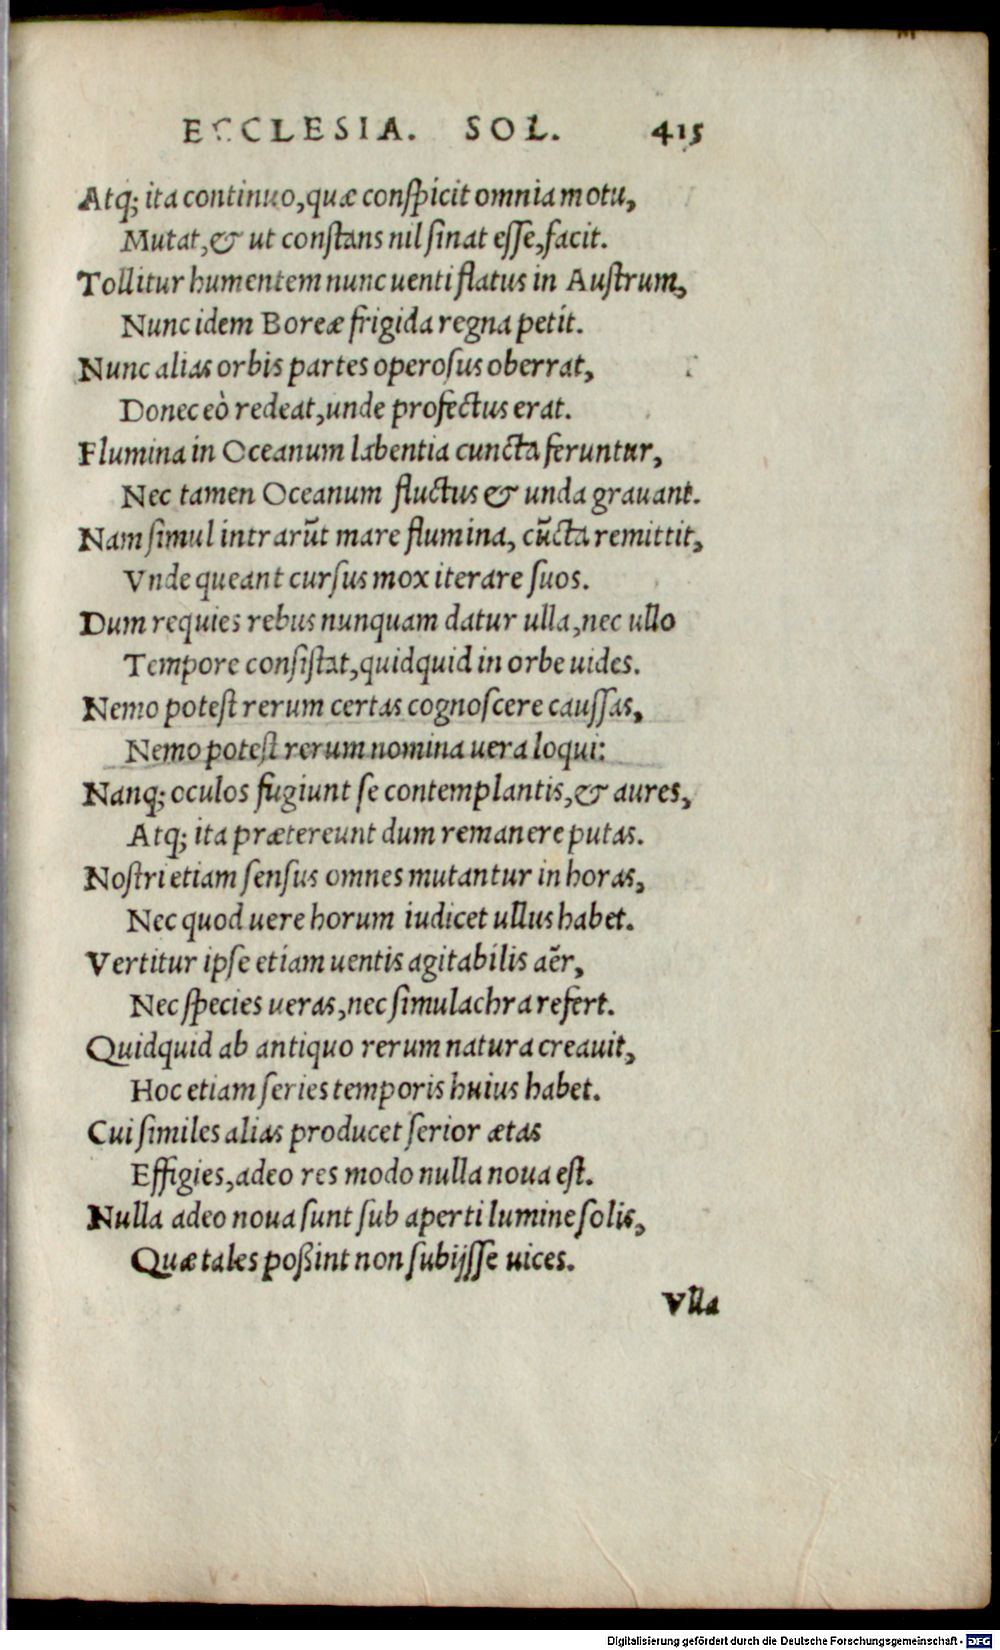 ECCLESIA. SOL. 415
Atq; ita continuo, quæ conspicit omnia motu,
Mutat, & ut constans nil sinat esse, facit.
Tollitur humentem nunc uenti flatus in Austrum,
Nunc idem Boreæ frigida regna petit.
Nunc alias orbis partes operosus oberrat,
Donec eò redeat, unde profectus erat.
Flumina in Oceanum labentia cuncta feruntur,
Nec tamen Oceanum fluctus & unda grauant.
Nam simul intrarũt mare flumina, cũcta remittit,
Vnde queant cursus mox iterare suos.
Dum requies rebus nunquam datur ulla, nec ullo
Tempore consistat, quidquid in orbe uides.
Nemo potest rerum certas cognoscere caussas,
Nemo potest rerum nomina uera loqui:
Nanq; oculos fugiunt se contemplantis, & aures,
Atq; ita prætereunt dum remanere putas.
Nostri etiam sensus omnes mutantur in horas,
Nec quod uere horum iudicet ullus habet.
Vertitur ipse etiam uentis agitabilis aër,
Nec species ueras, nec simulachra refert.
Quidquid ab antiquo rerum natura creauit,
Hoc etiam series temporis huius habet.
Cui similes alias producet serior ætas
Effigies, adeo res modo nulla noua est.
Nulla adeo noua sunt sub aperti lumine solis,
Quæ tales poßint non subijsse uices.
Vlla
Digitalisierung gefördert durch die Deutsche Forschungsgemeinschaft - DFG